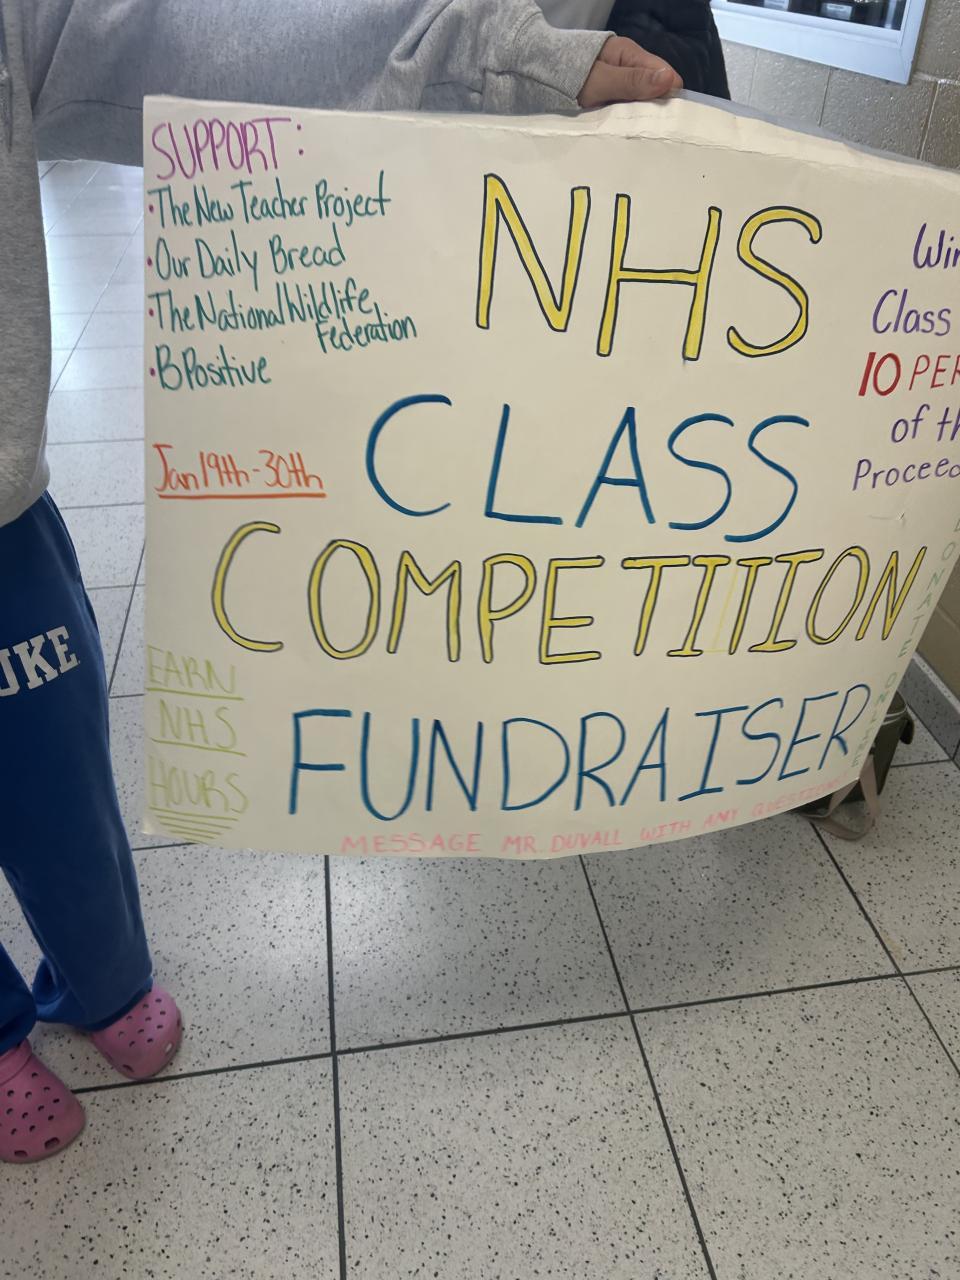 SUPPORT:
• The New Teacher Project
• Our Daily Bread
• The National Wildlife
Federation
• B Positive
Jan 19th-30th
EARN
NHS
HOURS
NHS
CLASS
COMPETITION
FUNDRAISER
MESSAGE MR. DUVALL WITH ANY QUESTIONS
Class
10 PER
of th
Proceed
DONATE ONLINE
UKE